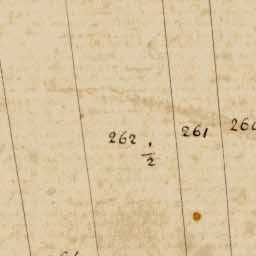 262 1/2
261